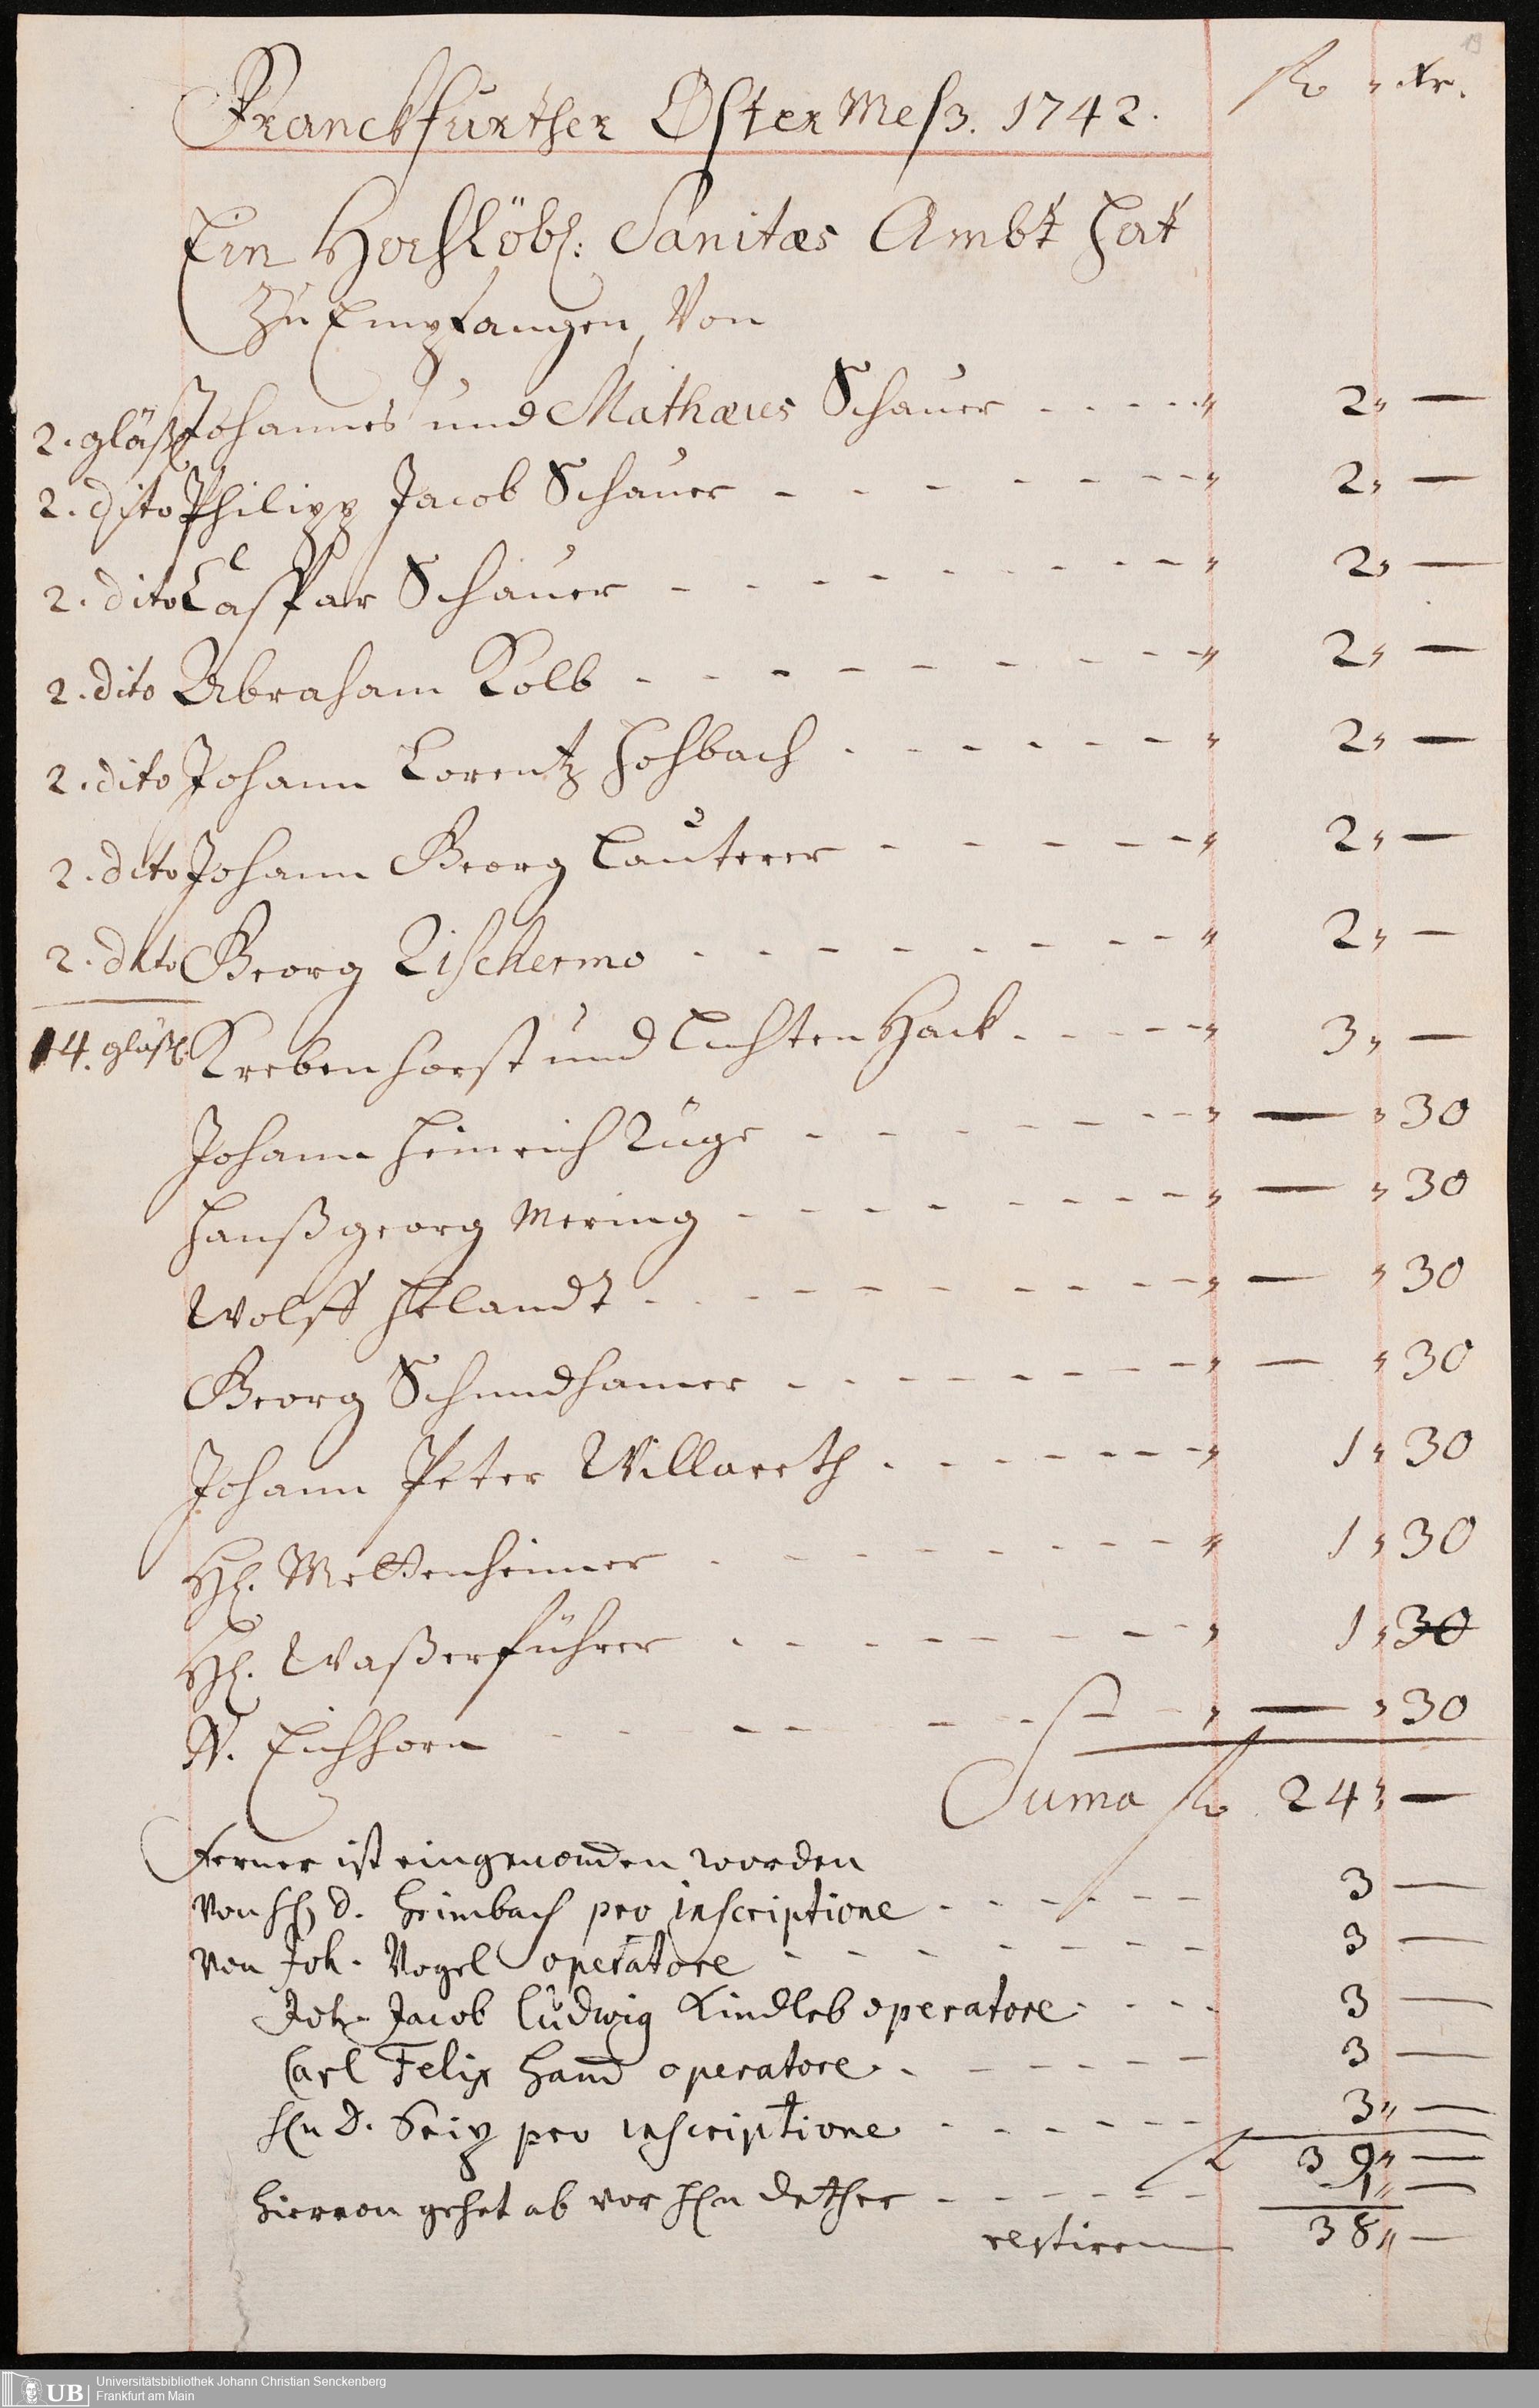 19
Franckfurther Oster Meß. 1742.
fl. Xr.
Ein Hochlöbl: Sanitæs Ambt hat
Zu Empfangen, Von
2. gläßl Johannes und Mathæus Schauer - - - - - " 2 " —
2. dito Philipp Jacob Schauer - - - - - - - " 2 " —
2. dito Caspar Schauer - - - - - - - - " 2 " —
2. dito Abraham Kolb - - - - - - - - " 2 " —
2. dito Johann Lorentz Hohbach - - - - - - " 2 " —
2. dito Johann Georg Lauterer - - - - - " 2 " —
2. dito Georg Zischermo - - - - - - - - " 2 " —
14. gläßl. Krebenhorst und Lichten Hack - - - - - " 3 " —
Johann Heinrich Ruge - - - - - - - " — " 30
Hanß georg Mering - - - - - - - - " — " 30
Wolff - - - - - - - - - " — " 30
Georg Schmidhamer - - - - - - - " — " 30
Johann Peter Willareth - - - - - - " 1 " 30
Hl. Mettenheimer - - - - - - - - " 1 " 30
Hl. Waßerführer - - - - - - - - " 1 " 30
N. Eichhorn - - - - - - - - " — " 30
Suma fl. 24 " —
Ferner ist eingenomen worden
von D. Heimbach pro inscriptione - - - - - 3 —
von Joh. Vogel operatore - - - - - - - 3 —
Joh. Jacob Ludwig Kindleb operatore - - - - 3 —
Carl Felix operatore - - - - - - 3 —
Hn D. pro inscriptione - - - - - 3 " —
fl 39 " —
hiervon gehet ab vor Hn Dether - - - - - - 1 " —
restiren 38 " —
UB
Universitätsbibliothek Johann Christian Senckenberg
Frankfurt am Main